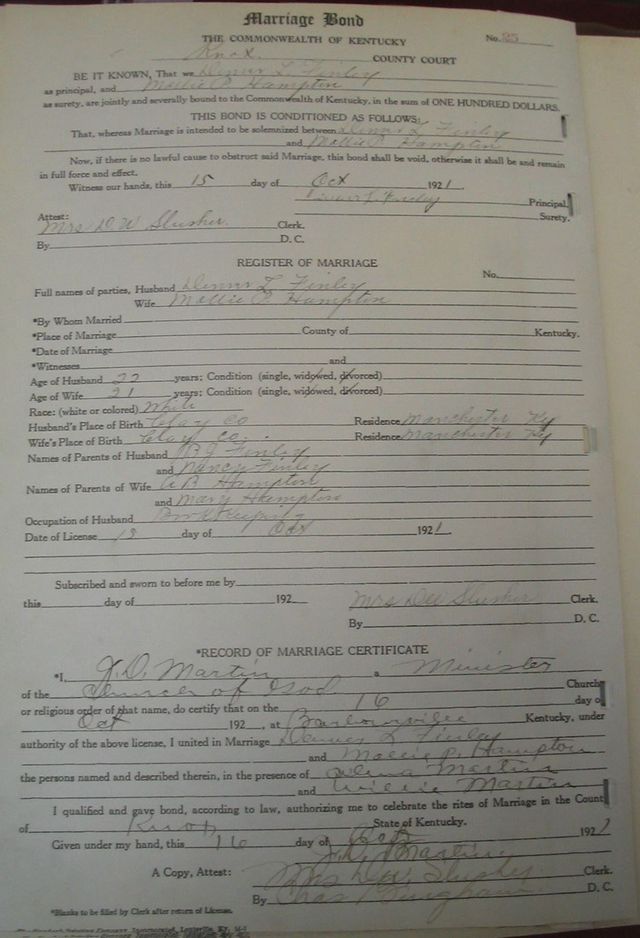 Marriage Bond
THE COMMONWEALTH OF KENTUCKY No. 25
Knox COUNTY COURT
BE IT KNOWN, That we L. Finley
as principal, and Mollie P. Hampton
as surety, are jointly and severally bound to the Commonwealth of Kentucky, in the sum of ONE HUNDRED DOLLARS.
THIS BOND IS CONDITIONED AS FOLLOWS:
That, whereas Marriage is intended to be solemnized between L Finley
and Mollie P. Hampton
Now, if there is no lawful cause to obstruct said Marriage, this bond shall be void, otherwise it shall be and remain
in full force and effect.
Witness our hands, this 15 day of Oct 1921.
L Finley Principal.
Surety.
Attest:
Mrs D W Slusher. Clerk.
By D. C.
REGISTER OF MARRIAGE
No.
Full names of parties, Husband L Finley
Wife Mollie P. Hampton
*By Whom Married
*Place of Marriage County of Kentucky.
*Date of Marriage
*Witnesses and
Age of Husband 22 years; Condition (single, widowed, divorced)
Age of Wife 21 years; Condition (single, widowed, divorced)
Race: (white or colored) White
Husband's Place of Birth Clay Co Residence Manchester Ky
Wife's Place of Birth Clay Co. Residence Manchester Ky
Names of Parents of Husband Finley
and Nancy Finley
Names of Parents of Wife A B Hampton
and Mary Hampton
Occupation of Husband Bookkeeping
Date of License day of Oct 1921.
Subscribed and sworn to before me by
this day of 192 Mrs Dee Slusher Clerk.
By D. C.
*RECORD OF MARRIAGE CERTIFICATE
*I, J. D. Martin a Minister
of the Church of God Church
or religious order of that name, do certify that on the 16 day of
Oct 192, at Barbourville Kentucky, under
authority of the above license, I united in Marriage L Finley
and Mollie P. Hampton
the persons named and described therein, in the presence of Martin
and Willie Martin
I qualified and gave bond, according to law, authorizing me to celebrate the rites of Marriage in the Count
of Knox State of Kentucky.
Given under my hand, this 16 day of Oct 1921
J. D. Martin
A Copy, Attest: Mrs D.W. Slusher Clerk.
By Chas Bingham D. C.
*Blanks to be filled by Clerk after return of License.